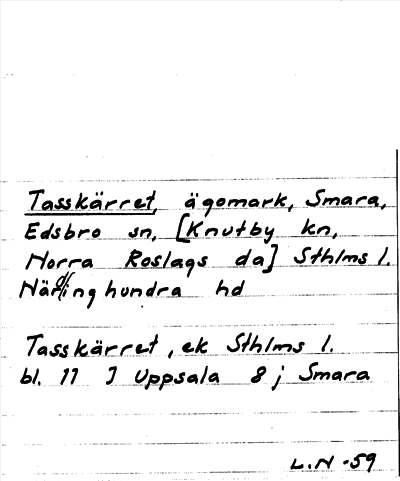 Tasskärret, ägomark, Smara,
Edsbro sn, [Knutby kn,
Norra Roslags da] Sthlms l.
Närdinghundra hd
Tasskärret, ek Sthlms l.
bl. 11 I Uppsala 8 j Smara
L.N -59